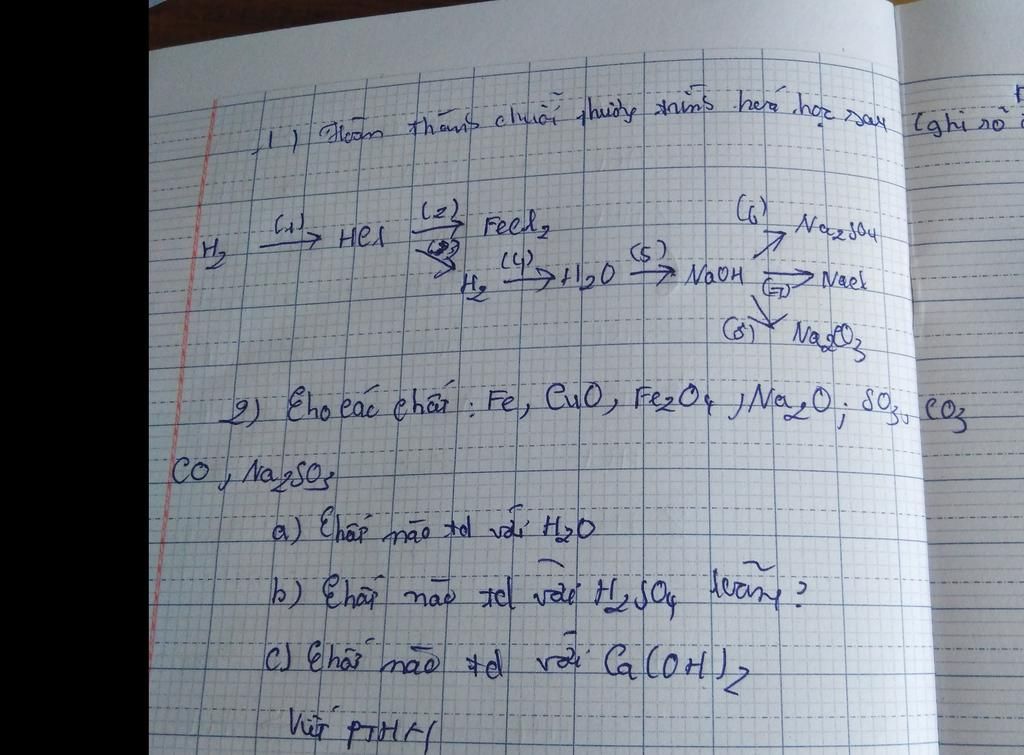 1) Hoàn thành chuỗi phương trình hoá học sau (ghi rõ
(1) (2) (6)
H2 → HCl → FeCl2 Na2SO4
(3) (4) (5)
H2 → H2O → NaOH → NaCl
(7)
(8) Na2CO3
2) Cho các chất: Fe, CuO, Fe2O4, Na2O; SO3, CO3
CO, Na2SO3
a) Chất nào td với H2O
b) Chất nào td với H2SO4 loãng?
c) Chất nào td với Ca(OH)2
Viết PTHH